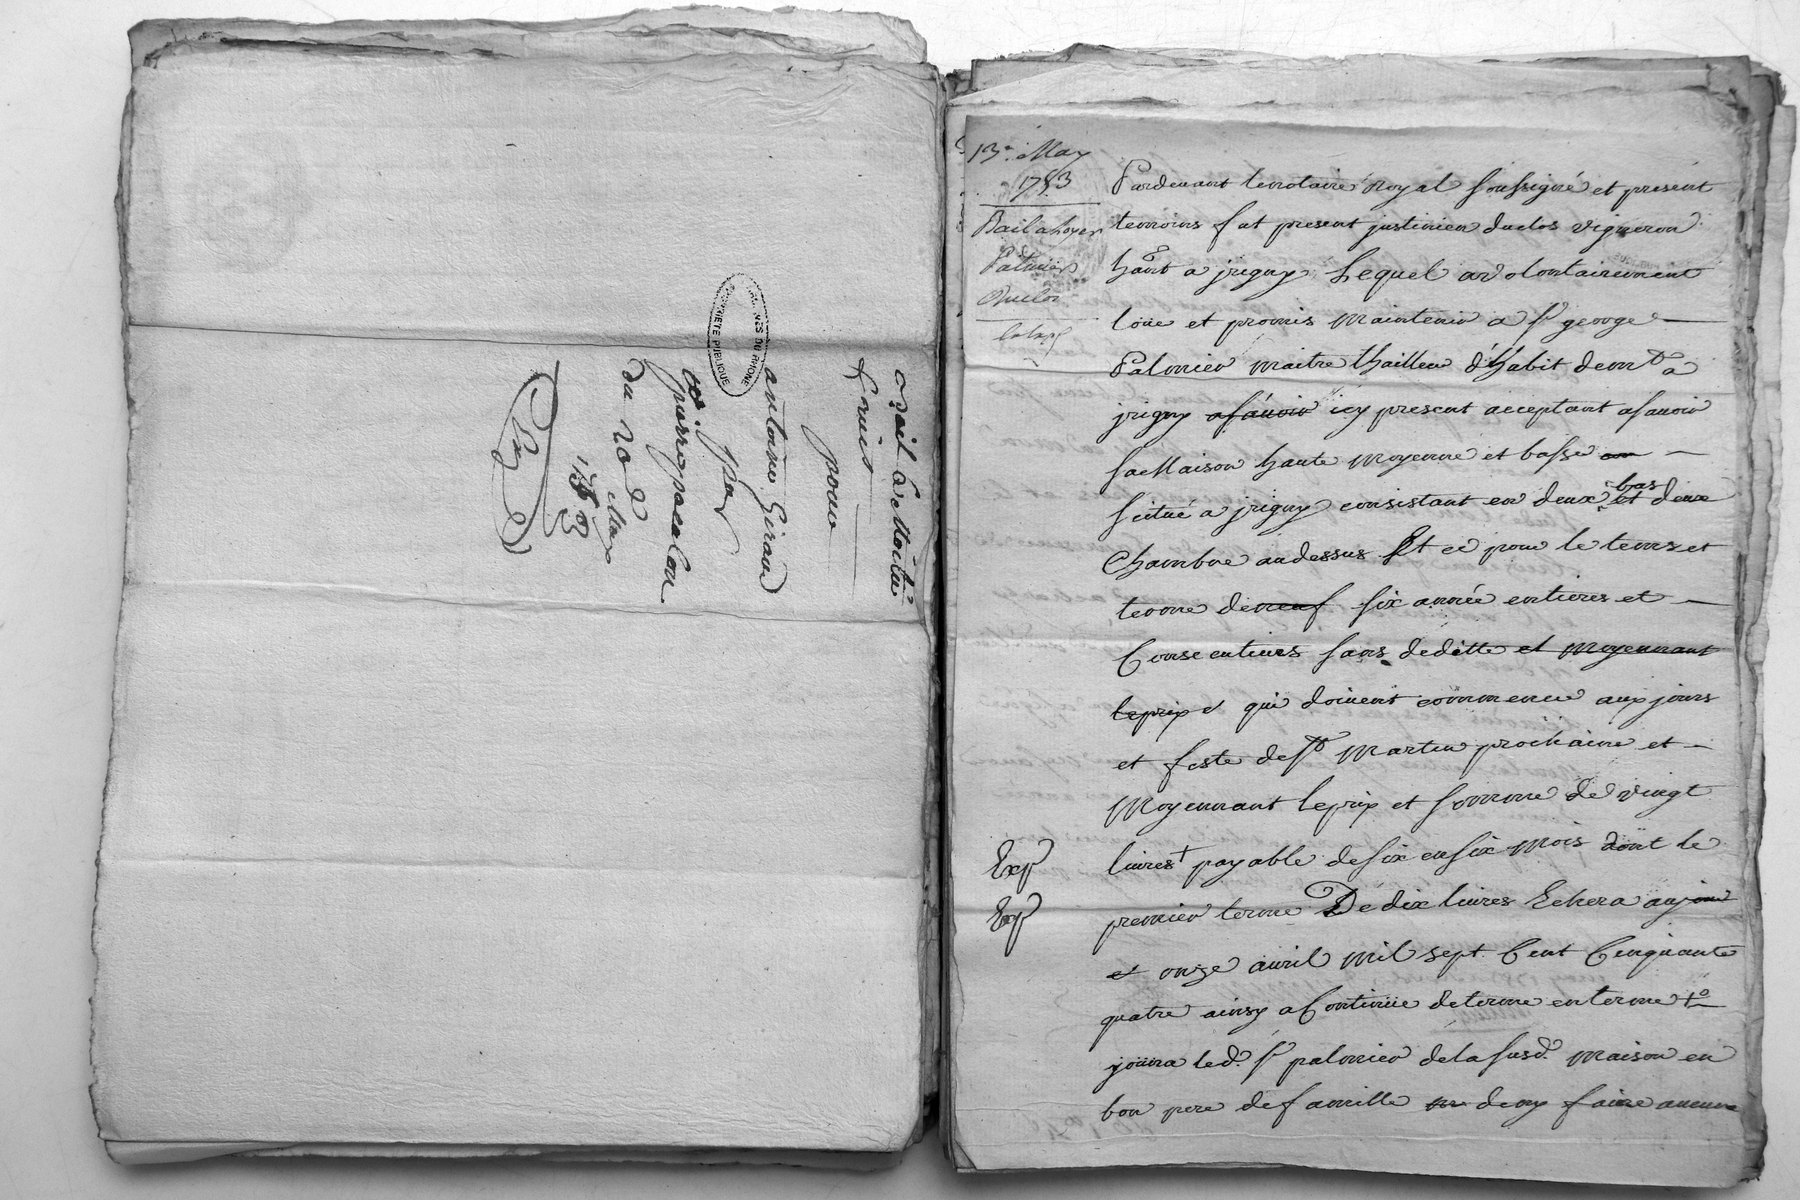 Bail a Moitié
fruict
pour
antoine Giraud
par
pierre pacalon
du 20e
May
1753
ARCHIVES DU RHONE
PROPRIÉTÉ PUBLIQUE
13e. May
1753
Bail a loyer
Palmier
Duclos
Pardevant le notaire royal soussigné et present
temoins fut present justinien duclos vigneron
hant a jrigny Lequel a volontairement
loüe et promis maintenir a sr george
Palmier maitre thailleur d'habit demt a
jrigny asavoir icy present acceptant asavoir
sa Maison haute moyenne et basse
scitué a jrigny consistant en deux bas et deux
Chambre au dessus Et ce pour le tems et
terme de neuf six année entieres et
Consecutives sans deditte et moyennant
le prix et qui doivent commencer aux jours
et feste de st Martin prochaine et
Moyennant le prix et somme de vingt
Exp livres + payable de six en six mois dont le
Exp premier terme De dix livres Echera au jour
et onze avril mil sept Cent Cinquante
quatre ainsy a Continüer de terme en terme
joüira led. sr palmier de la susd. maison en
bon pere de famille de ny faire aucune